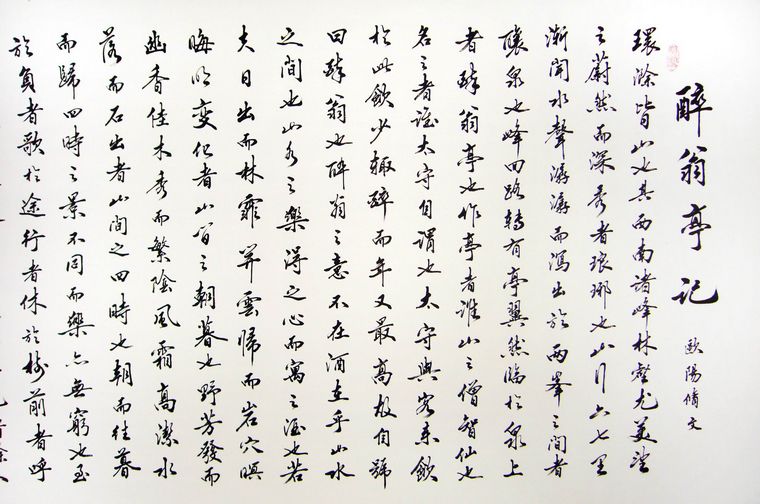 醉翁亭記
歐陽脩文
環滁皆山也其西南諸峰林壑尤美望
之蔚然而深秀者琅琊也山行六七里
漸聞水聲潺潺而瀉出於兩峯之間者
釀泉也峰回路轉有亭翼然臨於泉上
者醉翁亭也作亭者誰山之僧智仙也
名之者誰太守自謂也太守與客來飲
於此飲少輒醉而年又最高故自號
曰醉翁也醉翁之意不在酒在乎山水
之間也山水之樂得之心而寓之酒也若
夫日出而林霏開雲歸而岩穴暝
晦明变化者山間之朝暮也野芳發而
幽香佳木秀而繁陰風霜高潔水
落而石出者山間之四時也朝而往暮
而歸四時之景不同而樂亦無窮也至
於負者歌於途行者休於樹前者呼